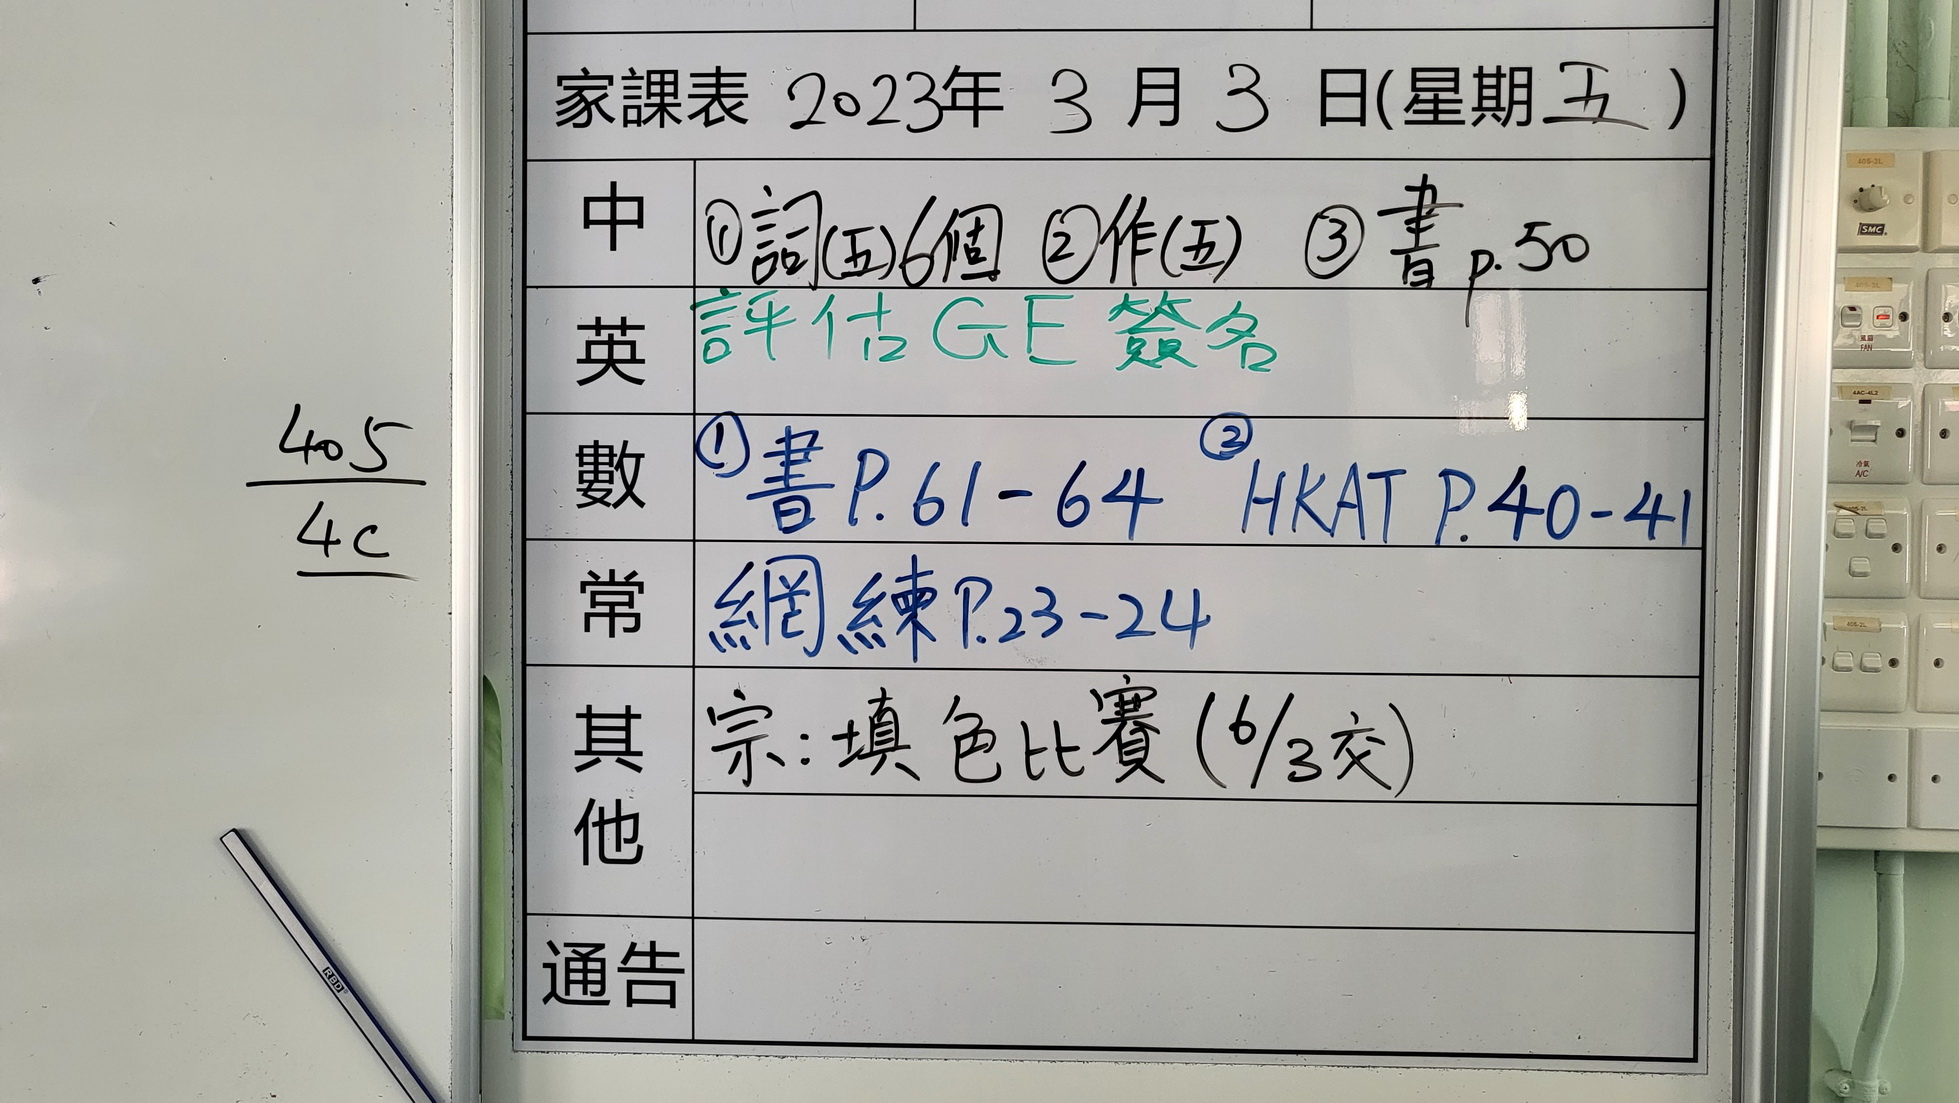 家課表 2023年 3 月 3 日(星期五)
中 ①詞(五)6個 ②作(五) ③書p.50
英 評估GE簽名
數 ①書P.61-64 ②HKAT P.40-41
常 網練P.23-24
其他 宗:填色比賽(6/3交)
通告
405
4C
RBD
40S-2L
SMC
風扇
FAN
4AC-4L2
冷氣
A/C
40S-2L